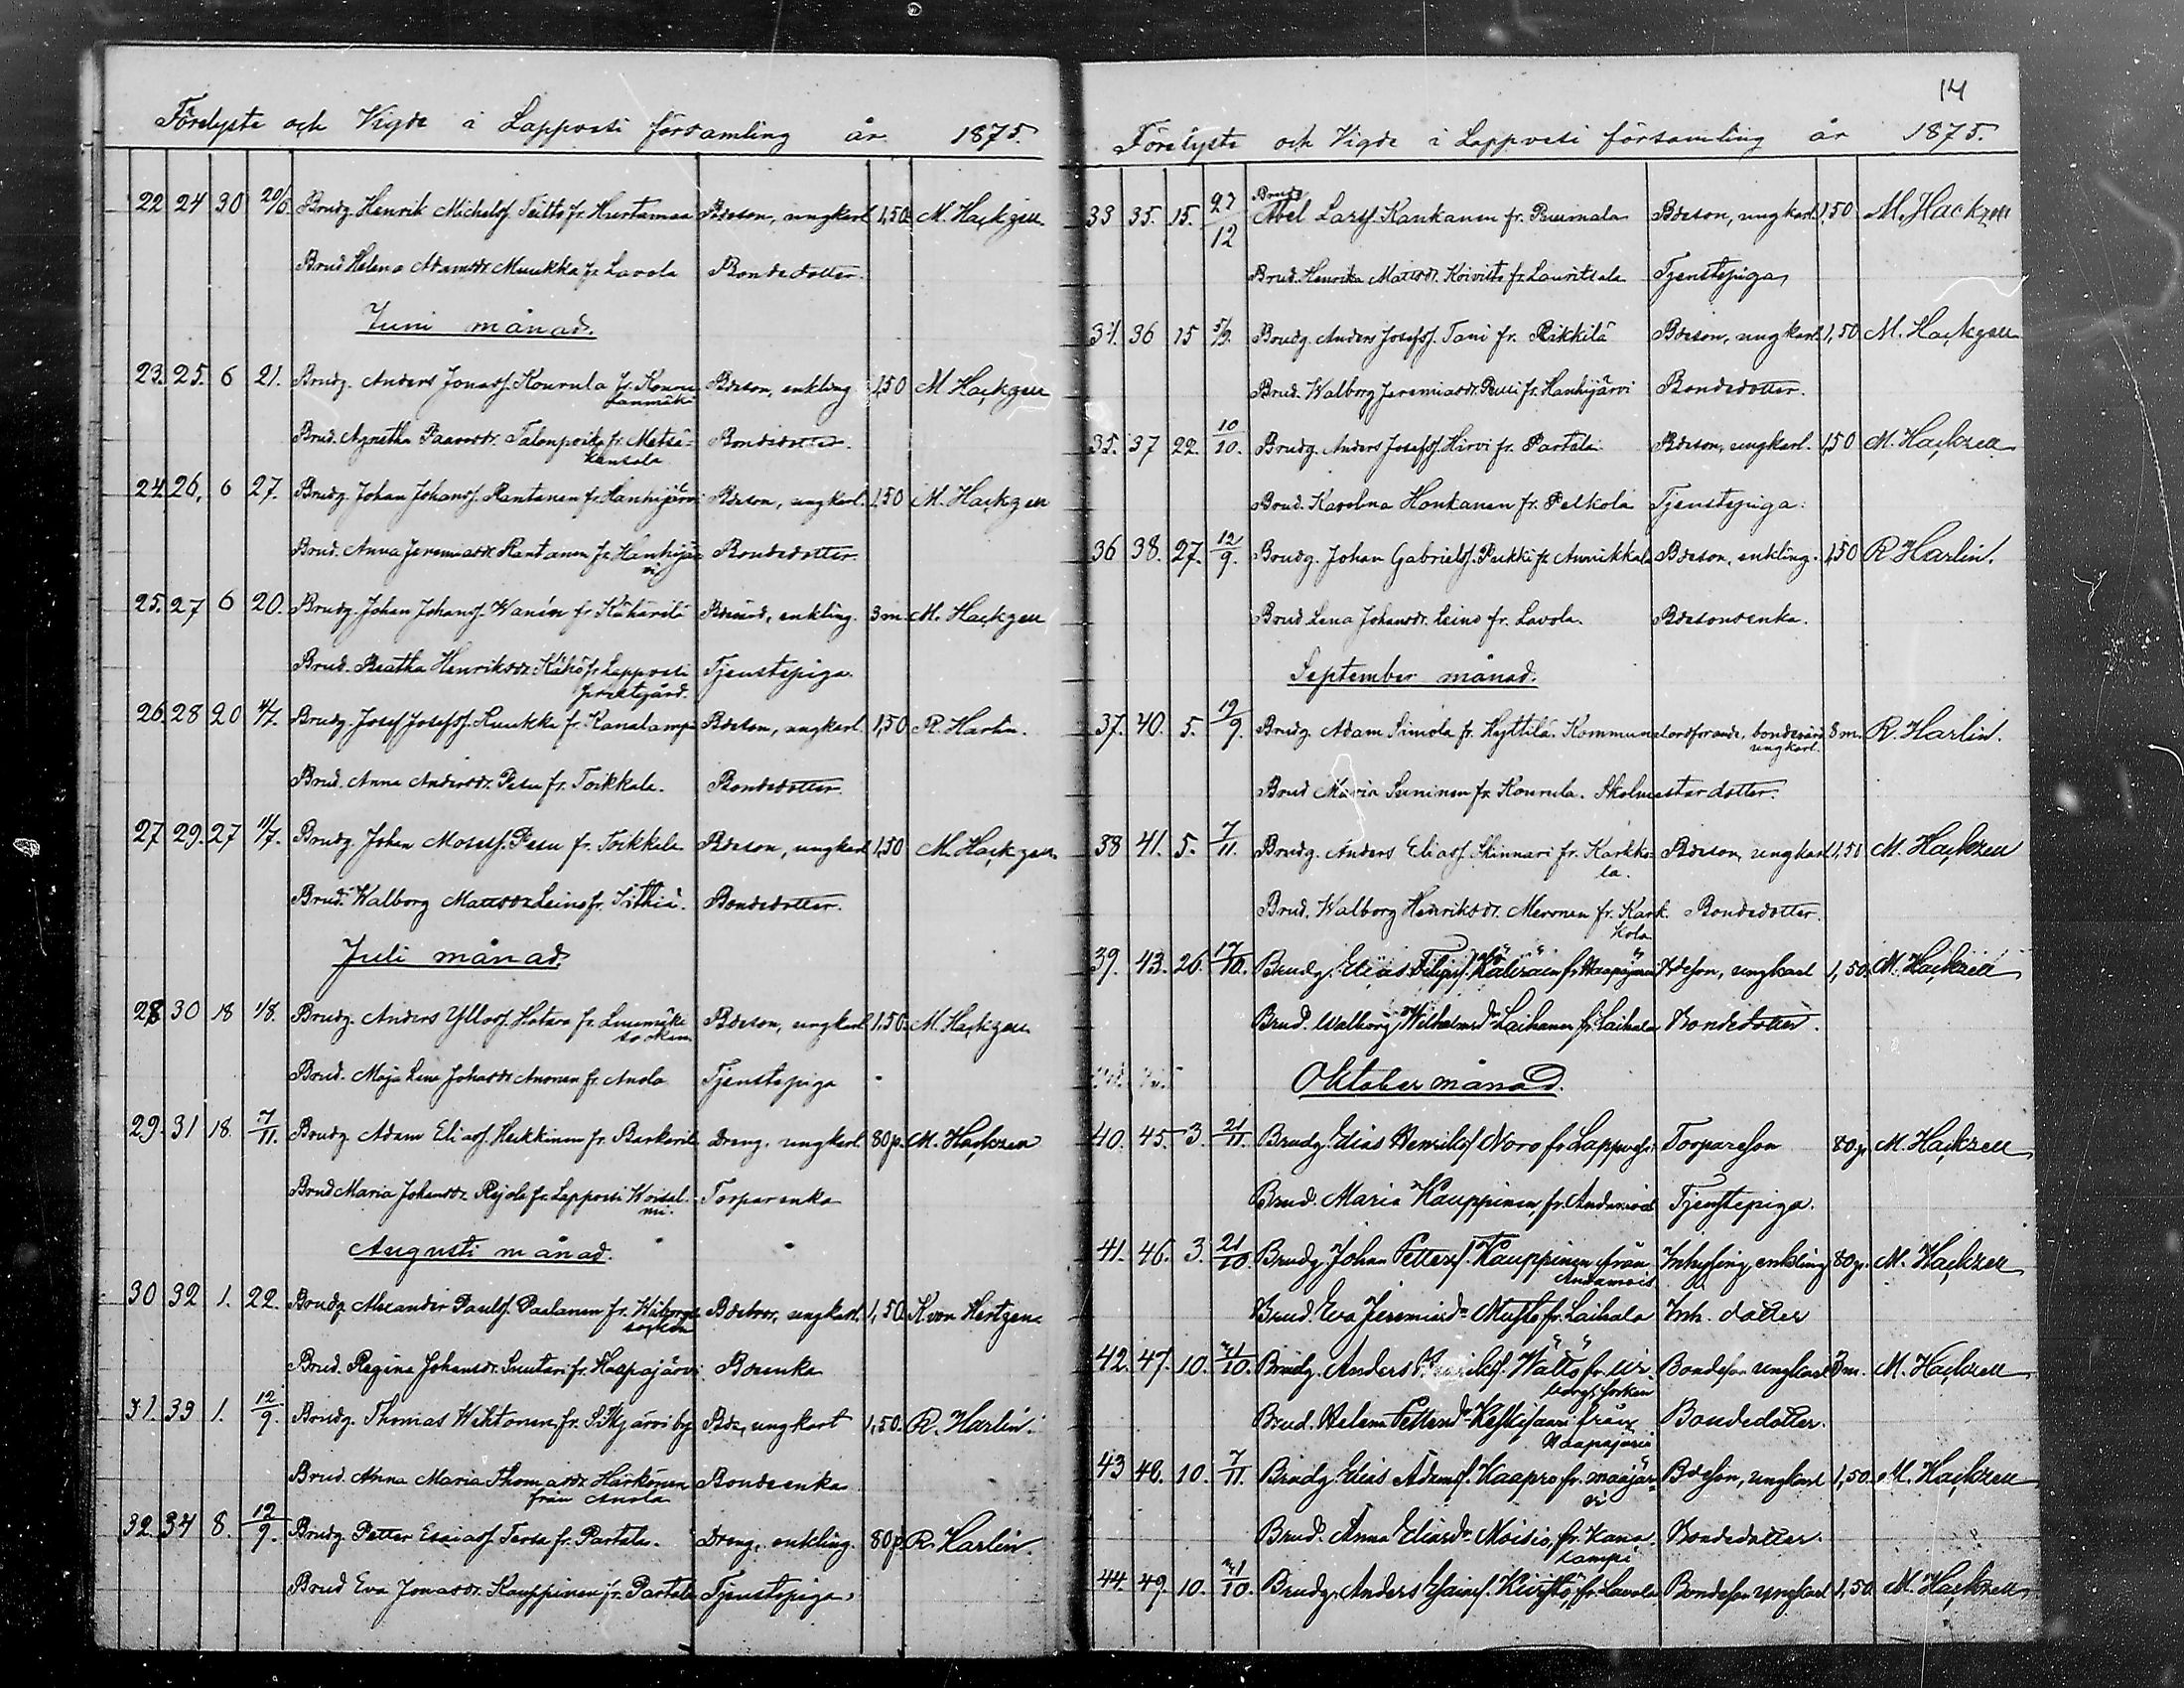 Förelyste och Vigde i Lappvesi församling år 1875.
22 24 30 20/6 Brudg. Henrik Michelss. Teitto fr. Hurtamaa Bdeson, ungkarl 1,50 M. Hackzell
Brud Helena Adamsdr. Muukka fr. Lavola Bondedotter.
Juni månad.
23. 25. 6 21. Brudg. Anders Jonass. Konrula fr. Konnu Bdeson, enkling 1,50 M Hackzell
sanmäki
Brud. Agnetha Paavosdr. fr. Metsä- Bondedotter.
kansola
24 26, 6 27. Brudg. Johan Johanss. Rantanen fr. Hanhijärvi Bdeson, ungkarl. 1,50 M. Hackzell
Brud. Anna Jeremiasdr. Rantanen fr. Hanhijär Bondedotter.
vi
25. 27 6 20. Brudg. Johan Johanss. Wanén fr. Kähärilä enkling. 3 m M. Hackzell
Brud. Beatha Henriksdr. Kähö fr. Lappvesi Tjenstepiga
prestgård.
26 28 20 4/7. Brudg. Josef Josefss. Luukka fr. Kanalampi Bdeson, ungkarl 1,50 R. Harlin.
Brud. Anna Andersdr. Pesu fr. Toikkala. Bondedotter.
27 29. 27 11/7. Brudg. Johan Mosess. Pesu fr. Toikkala Bdeson, ungkarl 1,50 M. Hackzell
Brud. Walborg Mattsdr. Leino fr. Bondedotter.
Juli månad.
28 30 18 1/8. Brudg. Anders fr. Luumäki Bdeson, ungkarl 1,50. M. Hackzell
socken
Brud. Maja Lena Johansdr. Anonen fr. Anola Tjenstepiga
29. 31 18. 7/11. Brudg. Adam Eliass. Heikkinen fr. Dreng, ungkarl 80 p. M. Hackzell
Brud Maria Johansdr. fr. Lappvesi Torparenka
mi.
Augusti månad.
30 32 1. 22. Brudg. Alexander Paulss. Paalanen fr. Wiborgs ungkarl. 1,50. K. von Hertzen
socken
Brud. Regina Johansdr. Suutari fr. Haapajärvi Bdeenka
31. 33 1. 12/9. Brudg. Thomas Wihtonen fr. by Bde, ungkarl 1,50. R. Harlin.
Brud. Anna Maria Thomasdr. Härkönen Bondeenka
från Anola
32. 34 8. 12/9. Brudg. Petter Esaiass. Tersa fr. Partala. Dreng, enkling. 80 p R. Harlin.
Brud Eva Jonasdr. Kauppinen fr. Partala Tjenstepiga.
14
Förelyste och Vigde i Lappvesi församling år 1875.
Brudg
33 35. 15. 27/12 Abel Larss. Kaukanen fr. Ruumala Bdeson, ungkarl. 1,50 M. Hackzell
Brud. Henrika Mattsdr. Koivisto fr. Lauritsala Tjenstepiga
34. 36 15 5/9. Brudg. Anders Josefss. Tani fr. Rikkilä Bdeson, ungkarl. 1,50 M. Hackzell
Brud. Walborg Jeremiasdr. fr. Hanhijärvi Bondedotter.
35. 37 22. 10/10. Brudg. Anders Josefss. Hirvi fr. Partala Bdeson, ungkarl. 1,50 M. Hackzell
Brud. Karolina Honkanen fr. Pelkola Tjenstepiga.
36 38. 27. 12/9. Brudg. Johan Gabrielss. Pukki fr. Bdeson, enkling. 1,50 R Harlin.
Brud Lena Johansdr. Leino fr. Lavola. Bdesonsenka.
September månad.
37. 40. 5. 19/9. Brudg. Adam Simola fr. Hyttilä. Kommunalordförande, bondevärd 8 m. R. Harlin.
ungkarl.
Brud Maria Suninen fr. Konrula. Skolmestardotter.
38 41. 5. 7/11. Brudg. Anders Eliass. Skinnari fr. Karkko- Bdeson, ungkarl 1,50 M. Hackzell
la.
Brud. Walborg Henriksdr. Meronen fr. Kark. Bondedotter.
kola
39. 43. 26. 17/10. Brudg. Elias Filipss. fr. Haapajärvi Bdeson, ungkarl 1,50. M. Hackzell
Brud. Walborg Wilhelmsdr Laihanen fr. Laihala Bondedotter.
Oktober månad.
40. 45. 3. 21/11. Brudg. Elias Henrikss. Noro fr. Lappvesi Torpareson 80 p. M. Hackzell
Brud. Maria Kauppinen, fr. Tjenstepiga.
41. 46. 3. 21/10. Brudg. Johan Petterss. Kauppinen från Inhysing, enkling 80 p. M. Hackzell
Brud. Eva Jeremiasdr fr. Laihala Inh. dotter
42. 47. 10. 31/10. Brudg. Anders Henrikss. Wättö fr. Wi- Bondeson ungkarl 3 m. M. Hackzell
borgs socken
Brud. Helena Pettersdr Keskisaari från Bondedotter.
Haapajärvi
43 48. 10. 7/11. Brudg. Elias Adamss. Kaapro fr. maajär- Bdeson, ungkarl 1,50. M. Hackzell
vi
Brud. Anna Eliasdr Moisio, fr. Kana- Bondedotter.
lampi
44. 49. 10. 31/10. Brudg. Anders fr. Lavola Bondeson ungkarl 1,50. M. Hackzell